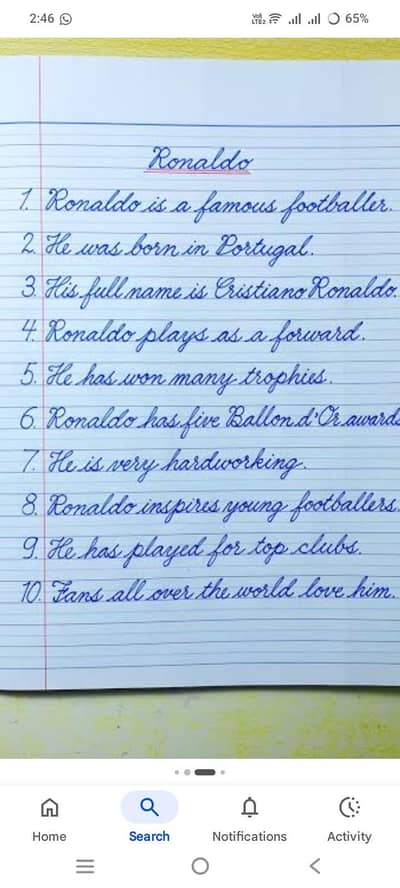 2:46
VoB LTE2 65%
Ronaldo
1. Ronaldo is a famous footballer.
2. He was born in Portugal.
3. His full name is Cristiano Ronaldo.
4. Ronaldo plays as a forward.
5. He has won many trophies.
6. Ronaldo has five Ballon d'Or awards
7. He is very hardworking.
8. Ronaldo inspires young footballers.
9. He has played for top clubs.
10. Fans all over the world love him.
Home Search Notifications Activity